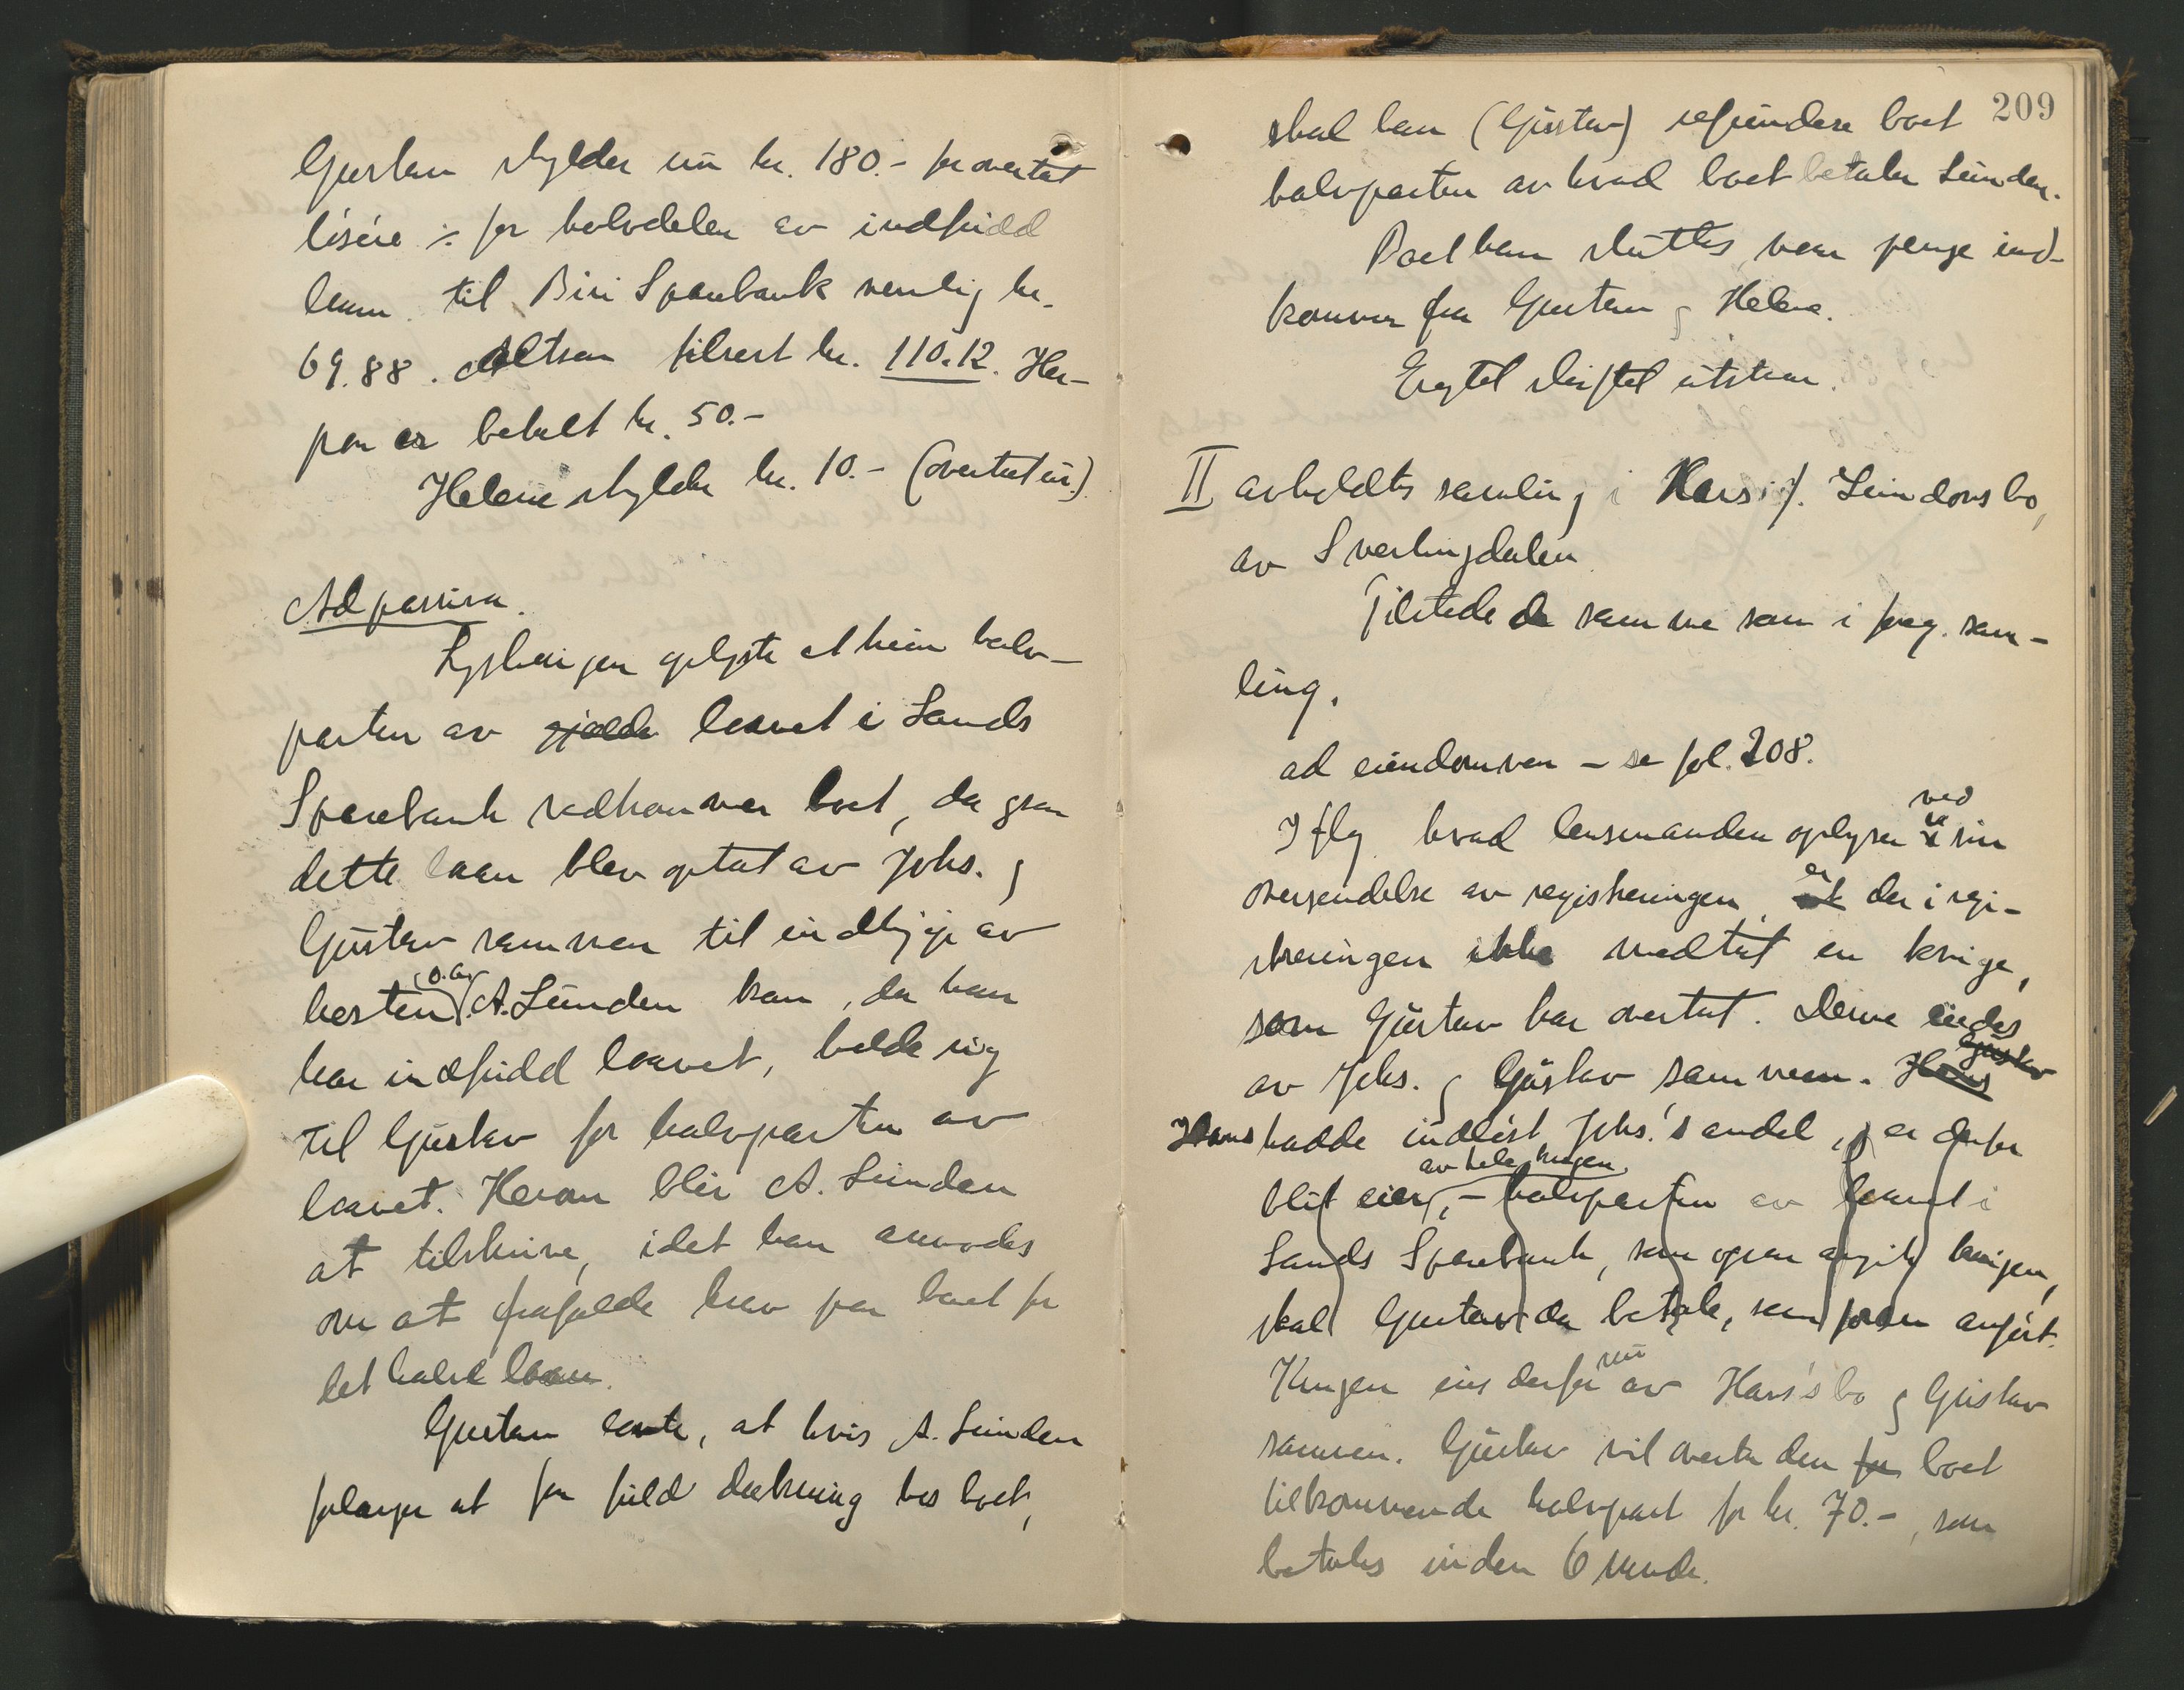 Gustav skylder nu kr. 180.- for overtat
løsøre ÷ for halvdelen av indfridd
laan til Biri Sparebank nemlig kr.
69.88. Altsaa tilrest kr. 110.12. Her-
paa er betalt kr. 50.-
Helene skylder kr. 10.- (overtat ur.)
Ad passiva.
oplyste at kun halv-
parten av gjælde laanet i Lands
Sparebank vedkommer boet, da
dette laan blev optat av Johs. og
Gustav sammen til indkjøp av
hesten. (o. a.) A. Lunden kan, da han
har indfridd laanet, holde sig
til Gustav for halvparten av
laanet. Herom blir A. Lunden
at tilskrive, idet han anmodes
om at frafalde krav paa boet for
det halve laan.
Gustav lovte, at hvis A. Lunden
forlanger at faa fuld dækning hos boet,
209
skal han (Gustav) refundere boet
halvparten av hvad boet betaler Lunden.
Boet kan sluttes, naar penge ind-
kommer fra Gustav og Helene.
utstaar.
II avholdtes samling i Hans J. Lundens bo,
av Snertingdalen.
Tilstede de samme som i foreg. sam-
ling.
ad eiendommen – se fol. 208.
Iflg. hvad lensmanden oplyser ved sin
oversendelse av registreringen, er der i regi-
streringen ikke medtat en kvige,
som Gustav har overtat. Denne eiedes
av Johs. og Gustav sammen. Hans Gustav
Hans hadde indløst Johs.'s andel, og er derfor
blit eier av hele kvigen, – halvparten av laanet i
Lands Sparebank, som ogsaa angik kvigen,
skal Gustav da betale, som foran anført.
Kvigen eies derfor nu av Hans's bo og Gustav
sammen. Gustav vil overta den for boet
tilkommende halvpart for kr. 70.-, som
betales inden 6 mndr.